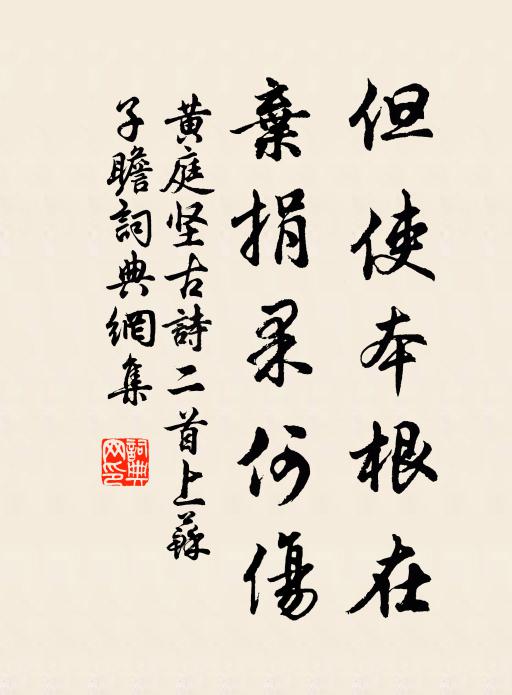 但使本根在
棄捐果何傷
黄庭坚古詩二首上蘇
子瞻詞典網集
詞典
网印